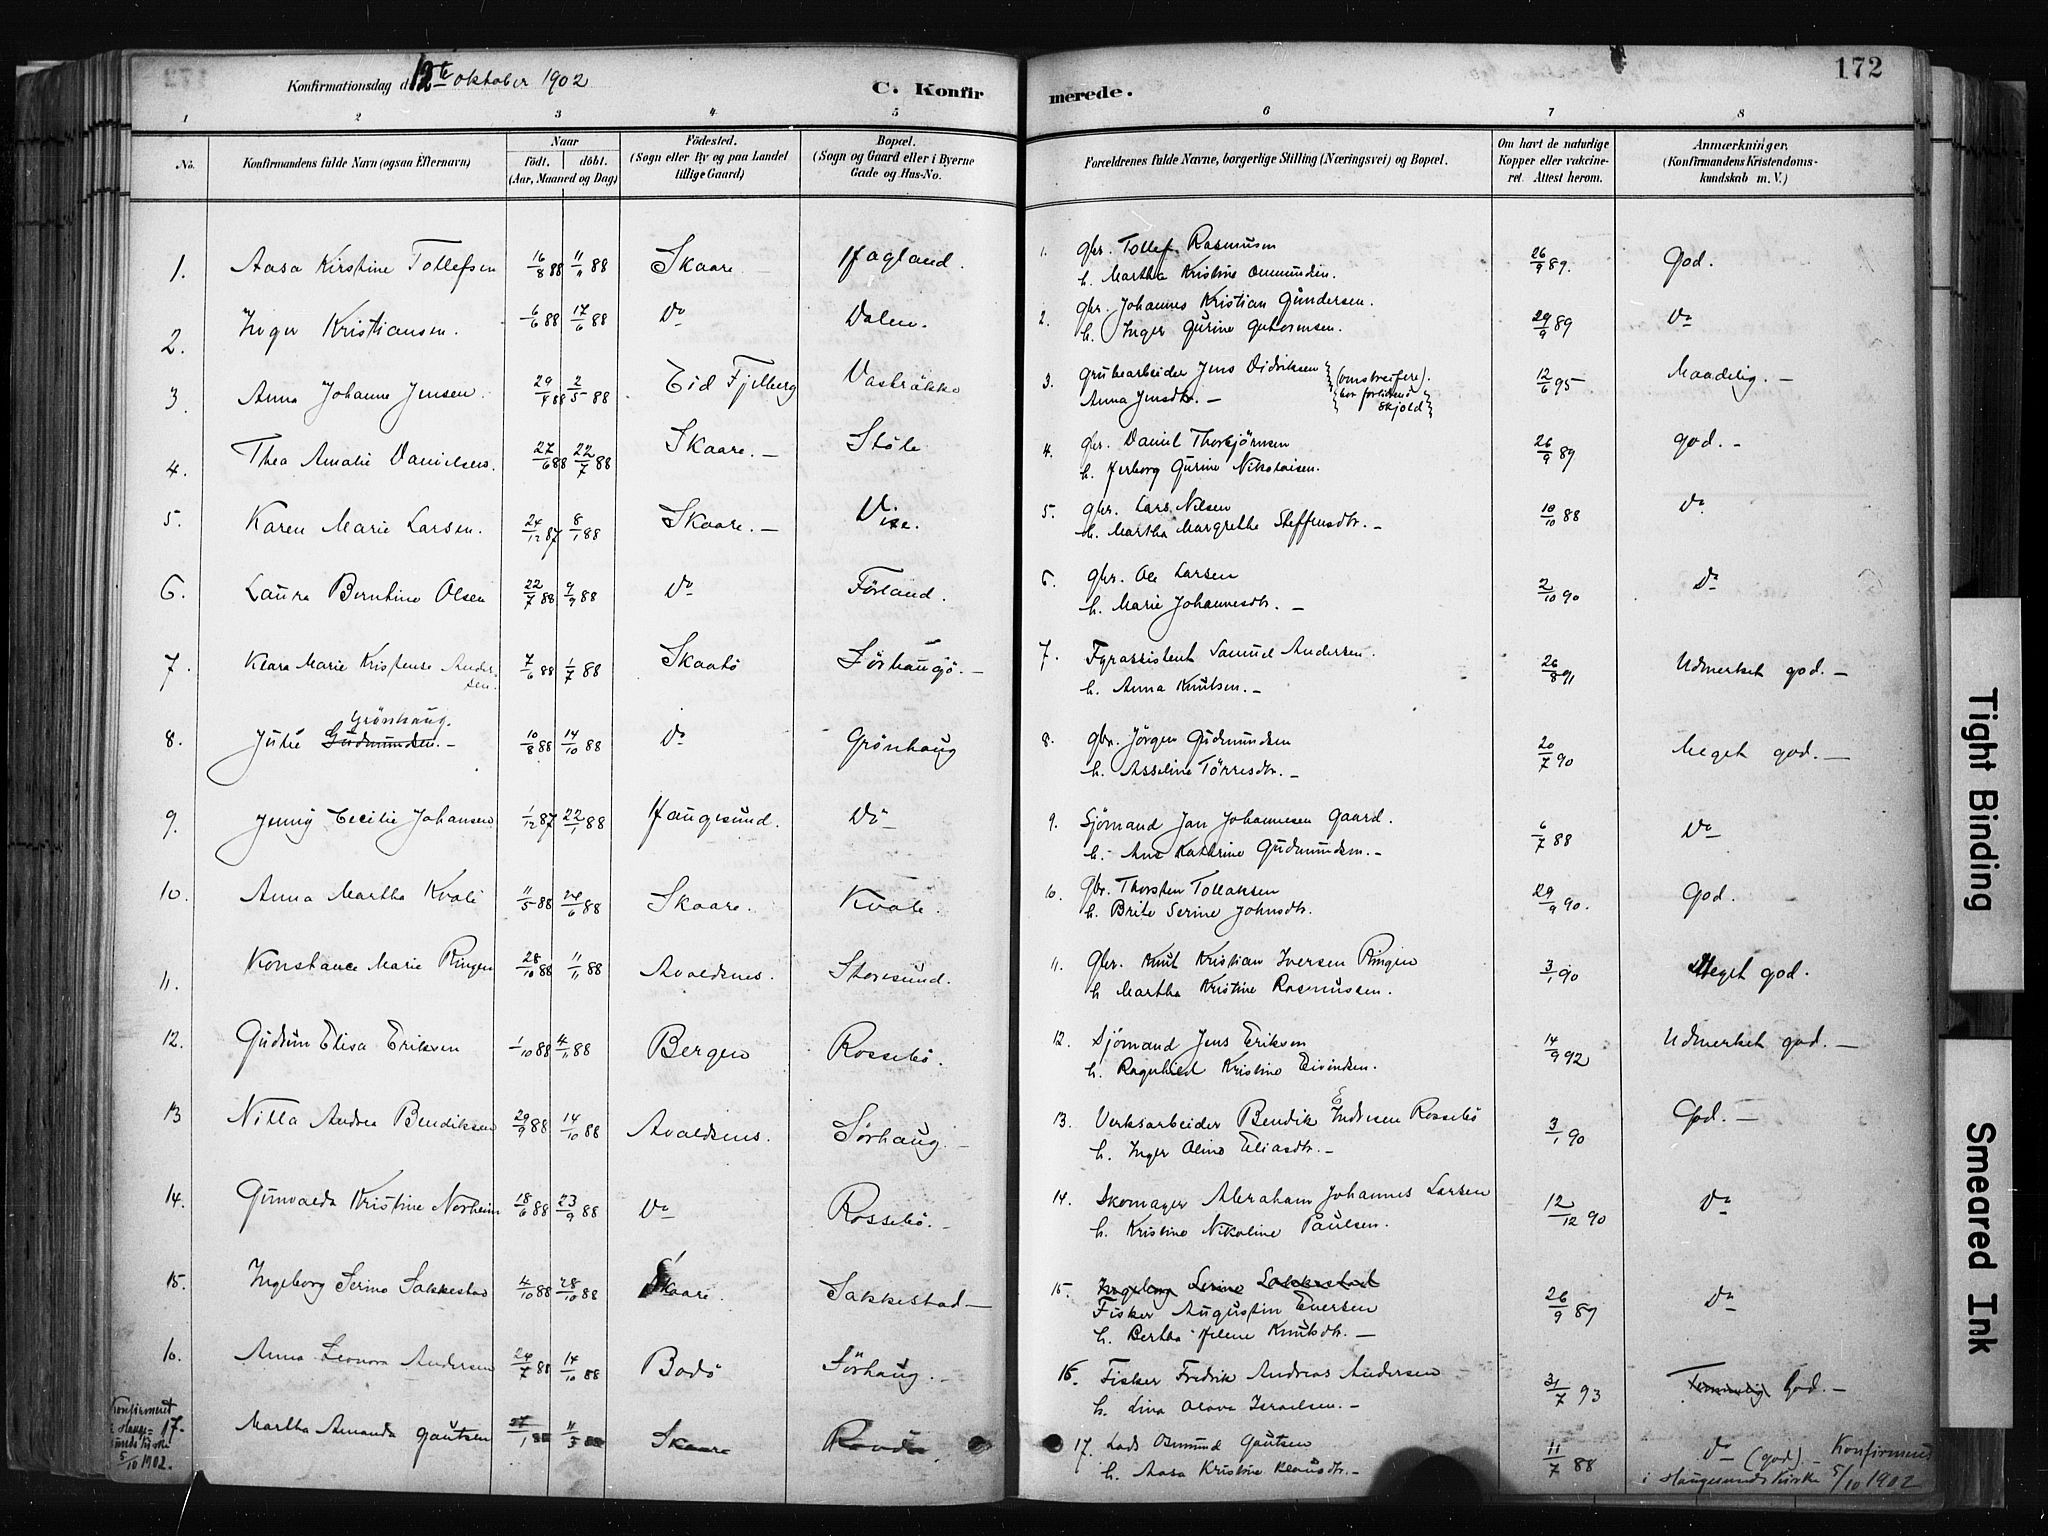 Konfirmationsdag d. 12te oktober 1902
C. Konfirmerede.
172
1 2 3 4 5 6 7 8
No.
Konfirmandens fulde Navn (ogsaa Efternavn)
Naar
födt. döbt.
(Aar, Maaned og Dag)
Födested.
(Sogn eller By og paa Landet
tillige Gaard)
Bopæl.
(Sogn og Gaard eller i Byerne
Gade og Hus-No.
Forældrenes fulde Navne, borgerlige Stilling (Næringsvei) og Bopæl.
Om havt de naturlige
Kopper eller vakcine-
ret. Attest herom.
Anmærkninger.
(Konfirmandens Kristendoms-
kundskab m. V.)
1. Aasa Kirstine Tollefsen 16/8 88 11/11 88 Skaare. Hagland. 1. Gbr. Tollef Rasmusen 26/9 89. God.
h. Martha Kristine Ommundsen.
2. Inger Kristiansen. 6/6 88 17/6 88 Do Dalen. 2. Gbr. Johannes Kristian Gundersen. 29/9 89 Do
h. Inger Gurine
3. Anna Johanne Jensen. 29/4 88 2/5 88 Eid Fjelberg 3. Grubearbeider Jens Didriksen (omstreifere). 12/6 95 Maadelig.
Anna Jensdtr. Skjold
4. Thea Amalie Danielsen. 27/6 88 22/7 88 Skaare. Stöle 4. Gbr. Daniel Thorbjörnsen 26/9 89 God.
h. Herborg Gurine Nikolaisen.
5. Karen Marie Larsen. 24/12 87 8/1 88 Skaare. 5. Gbr. Lars Nilsen 10/10 88 Do
h. Martha Margrethe Steffensdtr.
6. Laura Berntine Olsen 22/7 88 9/9 88 Do Förland. 6. Gbr. Ole Larsen 2/10 90 Do
h. Marie Johannesdtr.
7. Klara Marie Kristense Ander-
sen. 7/6 88 1/7 88 Skaatö Sörhaugö. 7. Fyrassistent Samuel Andersen. 26/8 91 Udmerket god.
h. Anna Knutsen.
Grönhaug.
8. Julie Gudmundsen. 10/8 88 14/10 88 Do Grönhaug 8. Gbr. Jörgen Gudmundsen 20/7 90 Meget god.
h. Asseline Törresdtr.
9. Jenny Cecilie Johansen 1/12 87 22/1 88 Haugesund. Do 9. Sjömand Jan Johannesen Gaard. 6/7 88 Do
h. Ane Kathrine Gudmundsen.
10. Anna Martha Kvale 11/5 88 24/6 88 Skaare. Kvale. 10. Gbr. Thorsten Tollaksen 29/9 90. God.
h. Brite Serine Johnsdtr.
11. Konstance Marie Ringen 28/10 88 11/1 88 Avaldsnes. Storesund. 11. Gbr. Knut Kristian Iversen Ringen 3/1 90 Meget god.
h. Martha Kristine Rasmussen.
12. Gudrun Elisa Eriksen 1/10 88 4/1 88 Bergen Rossebö. 12. Sjömand Jens Eriksen 14/9 92 Udmerket god.
h. Ragnhild Kristine Eivindsen.
13 Nilla Andrea Bendiksen 29/9 88 14/10 88 Avaldsnes. Sörhaug. 13. Verksarbeider Bendik Endresen Rossebö 3/1 90 God.
h. Inger Oline Eliasdtr.
14. Gunvalda Kristine Norheim 18/6 88 23/9 88 Do Rossebö. 14. Skomager Abraham Johannes Larsen 12/12 90 Do
h. Kristine Nikoline Paulsen.
15. Ingeborg Serine Sakkestad 4/10 88 28/10 88 Skaare. Sakkestad 15. Ingeborg Serine Sakkestad 26/9 89 Do
Fisker Augustin Eversen
h. Bertha Helene Knutsdtr.
16. Anna Leonora Andersen 24/7 88 14/10 88 Bodö Sörhaug. 16. Fisker Fredrik Andreas Andersen 31/7 93 Temmelig God.
h. Lina Olava Israelsen.
Konfirmeret
i Hauge-
sunds kirke
5/10 1902.
17. Martha Amanda Gautsen 27/1 88 11/3 88 Skaare 17. Lods Osmund Gautsen 11/7 88 Do (god). Konfirmeret
h. Aasa Kristine Klausdtr. i Haugesunds Kirke 5/10 1902
Tight Binding
Smeared Ink